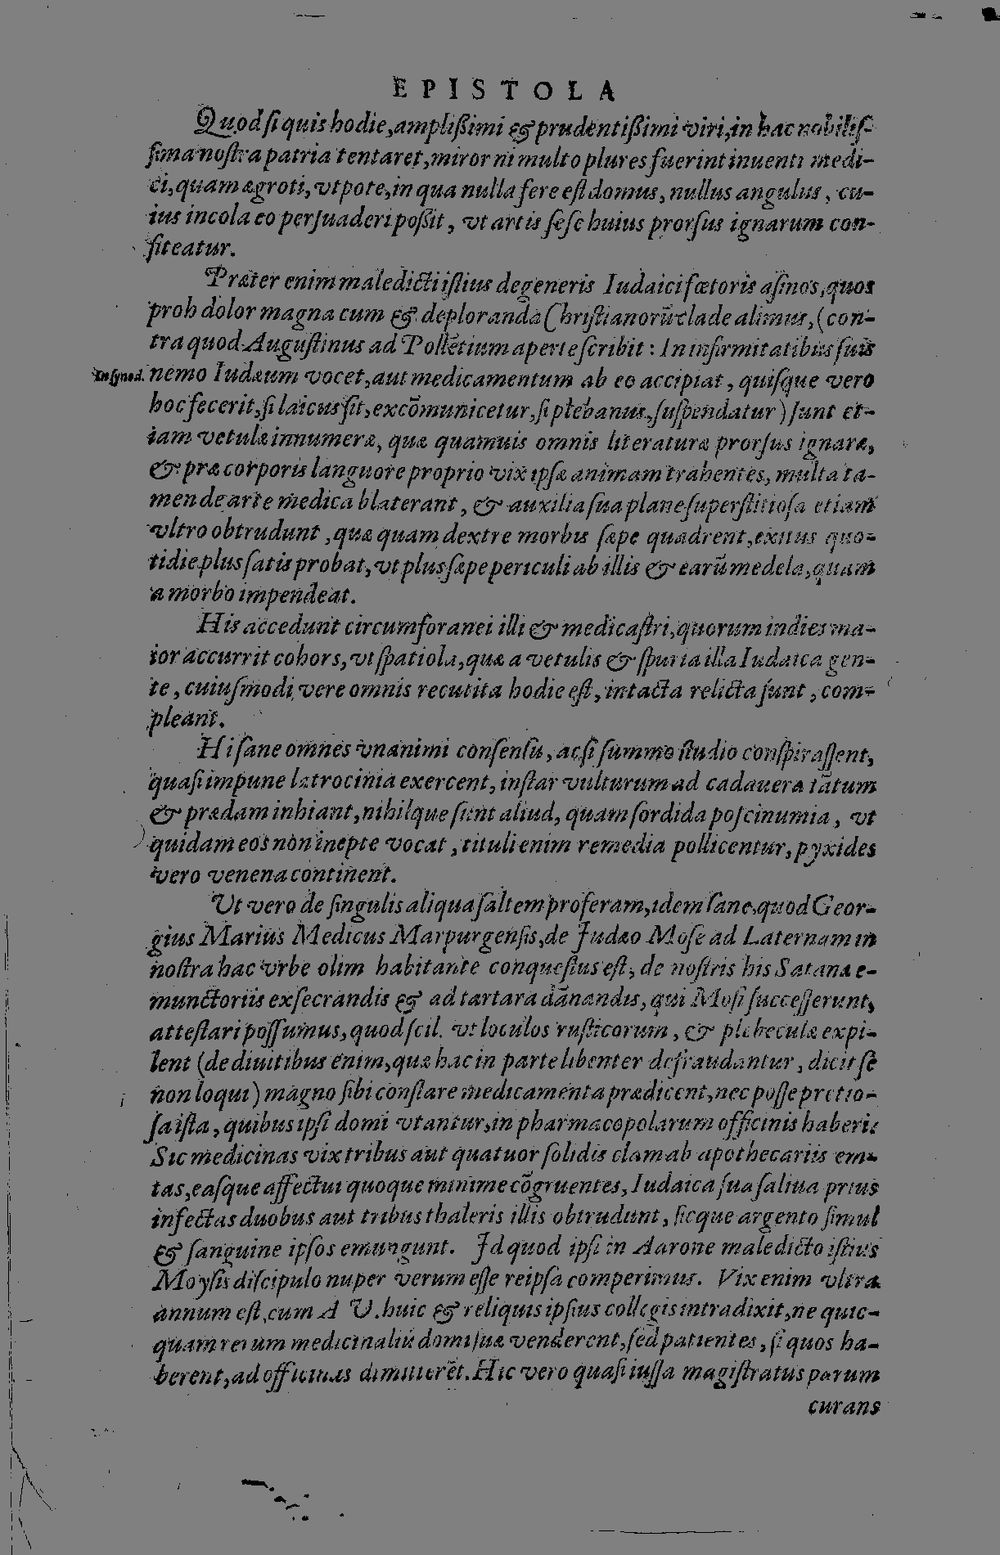 EPISTOLA
Quod si quis hodie, amplißimi & prudentißimi viri, in hac nobilis-
sima nostra patria tentaret, miror ni multo plures fuerint inuenti medi-
ci, quam ægroti, vtpote, in qua nulla fere est domus, nullus angulus, cu-
ius incola eo persuaderi poßit, vt artis sese huius prorsus ignarum con-
fiteatur.
Præter enim maledicti istius degeneris Iudaici fœtoris asinos, quos
proh dolor magna cum & deploranda Christianorũ clade alimus, (con-
tra quod Augustinus ad Pollẽtium aperte scribit: In infirmitatibus suis
In synod. nemo Iudæum vocet, aut medicamentum ab eo accipiat, quisque vero
hoc fecerit, si laicus sit, excõmunicetur, si plebanus, suspendatur) sunt et-
iam vetulæ innumeræ, quæ quamuis omnis literaturæ prorsus ignaræ,
& præ corporis languore proprio vix ipsæ animam trahentes, multa ta-
men de arte medica blaterant, & auxilia sua plane superstitiosa etiam
vltro obtrudunt, quæ quam dextre morbis sæpe quadrent, exitus quo-
tidie plus satis probat, vt plus sæpe periculi ab illis & earũ medela, quam
a morbo impendeat.
His accedunt circumforanei illi & medicastri, quorum indies ma-
ior accurrit cohors, vt spatiola, quæ a vetulis & spuria illa Iudaica gen-
te, cuiusmodi vere omnis recutita hodie est, intacta relicta sunt, com-
pleant.
Hi sane omnes vnanimi consensu, ac si summo studio conspirassent,
quasi impune latrocinia exercent, instar vulturum ad cadauera tãtum
& prædam inhiant, nihilque sunt aliud, quam sordida poscinumia, vt
quidam eos non inepte vocat, tituli enim remedia pollicentur, pyxides
vero venena continent.
Ut vero de singulis aliqua saltem proferam, idem sane, quod Geor-
gius Marius Medicus Marpurgensis, de Judæo Mose ad Laternam in
nostra hac vrbe olim habitante conquestus est, de nostris his Satanæ e-
munctoriis exsecrandis & ad tartara dãnandis, qui Mosi successerunt,
attestari possumus, quod scil. vt loculos rusticorum, & plebeculæ expi-
lent (de diuitibus enim, quæ hac in parte libenter defraudantur, dicit se
non loqui) magno sibi constare medicamenta prædicent, nec posse pretio-
sa ista, quibus ipsi domi vtantur, in pharmacopolarum officinis haberi:
Sic medicinas vix tribus aut quatuor solidis clam ab apothecariis em-
tas, easque affectui quoque minime cõgruentes, Iudaica sua saliua prius
infectas duobus aut tribus thaleris illis obtrudunt, sicque argento simul
& sanguine ipsos emungunt. Id quod ipsi in Aarone maledicto istius
Moysis discipulo nuper verum esse reipsa comperimus. Vix enim vltra
annum est, cum A V. huic & reliquis ipsius collegis intradixit, ne quic-
quam rerum medicinaliũ domi suæ venderent, sed patientes, si quos ha-
berent, ad officinas dimitterẽt. Hic vero quasi iussa magistratus parum
curans